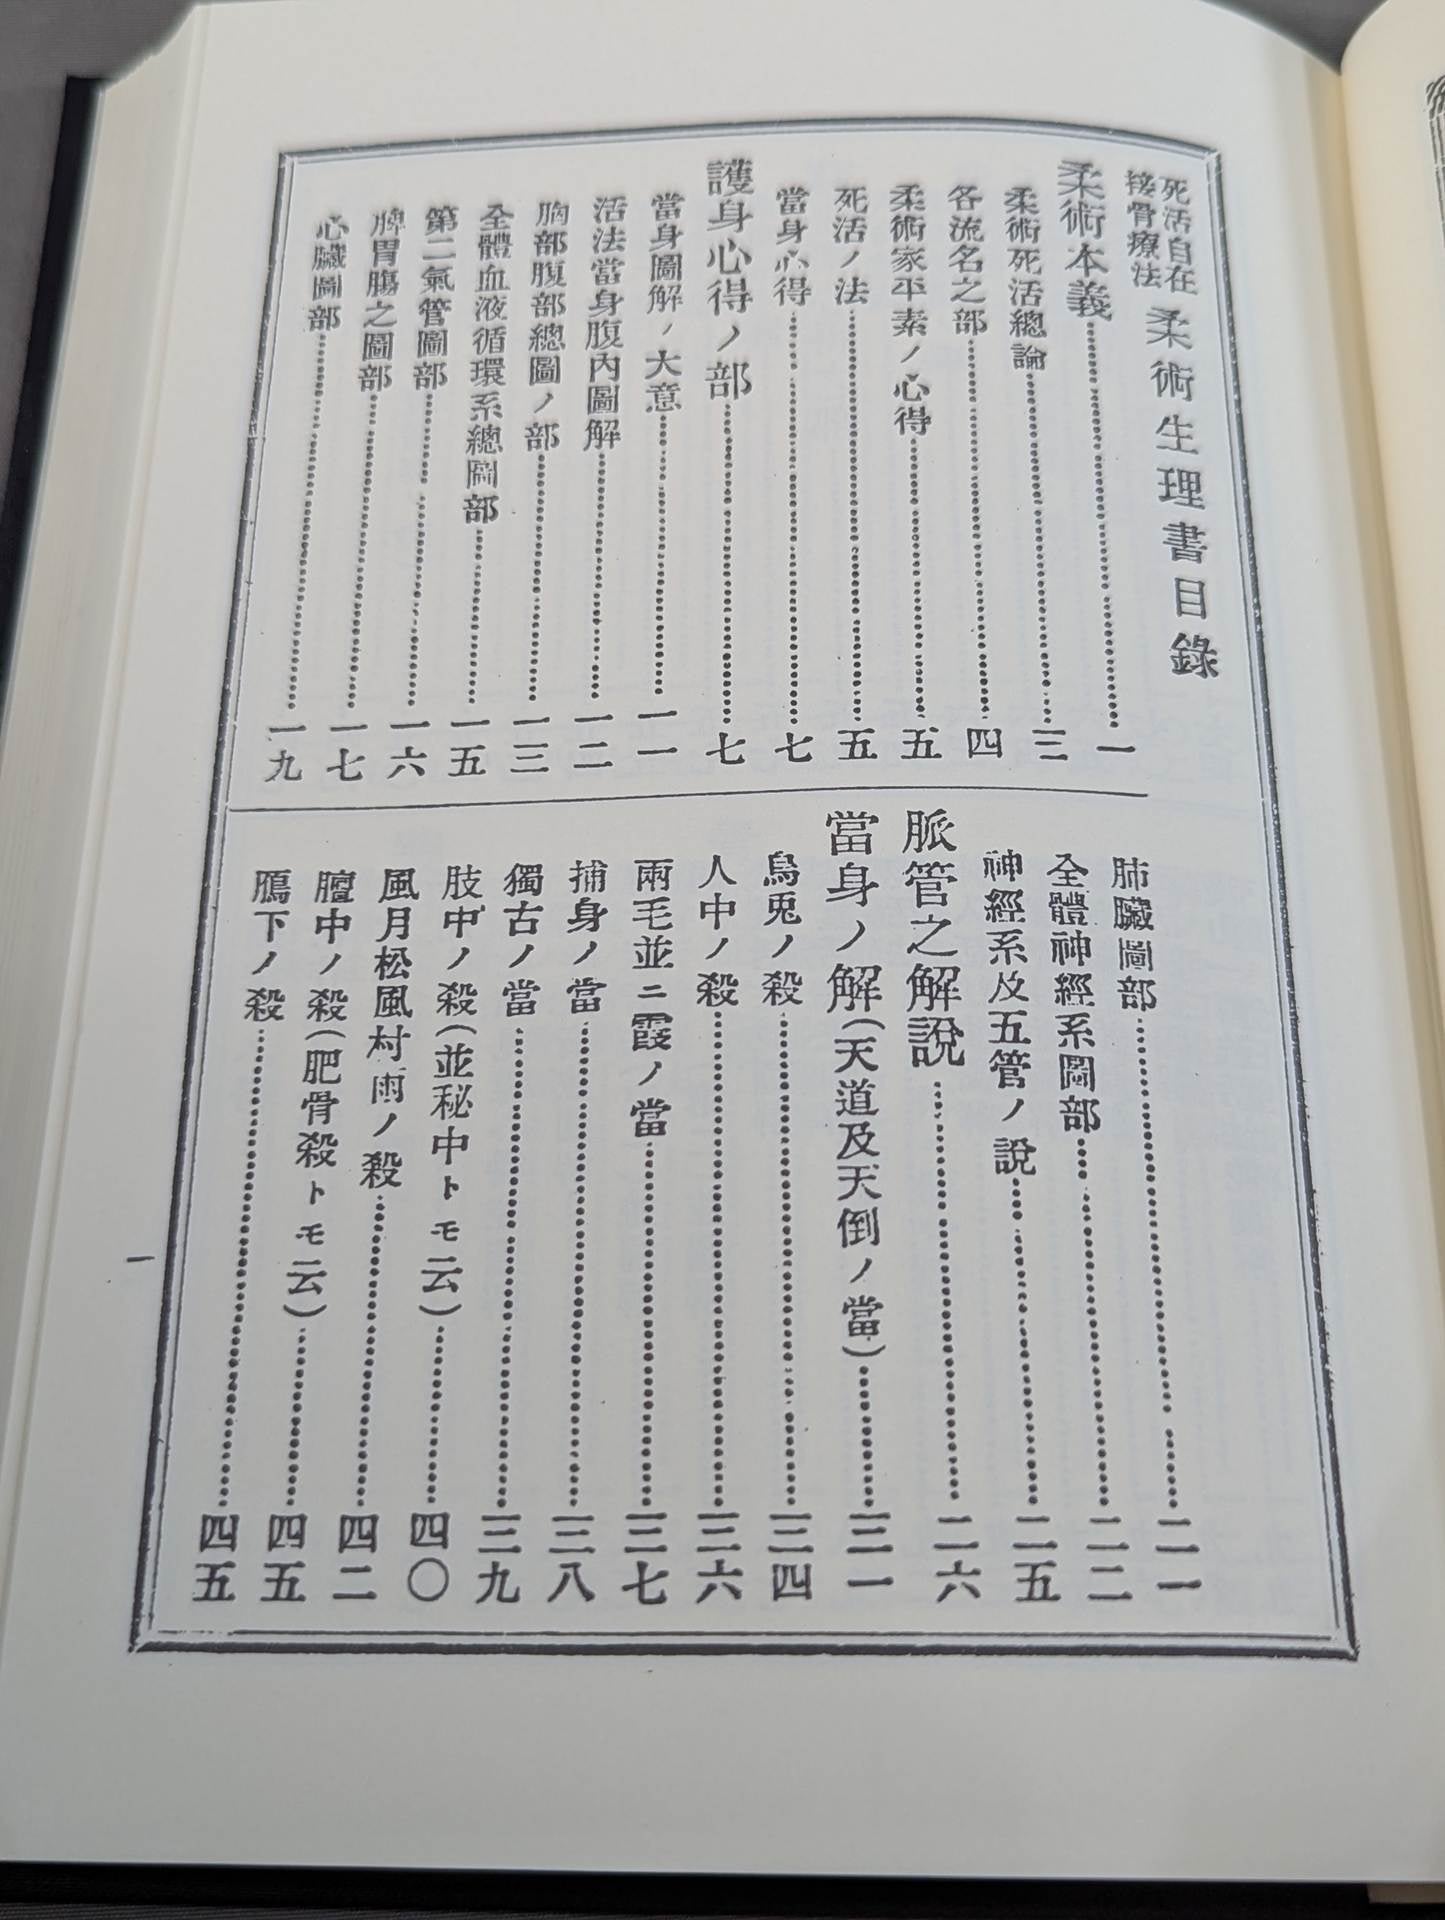 死活自在
接骨療法
柔術生理書目錄
柔術本義……一
柔術死活總論……三
各流名之部……四
柔術家平素ノ心得……五
死活ノ法……五
當身心得……七
護身心得ノ部……七
當身圖解ノ大意……一一
活法當身腹內圖解……一二
胸部腹部總圖ノ部……一三
全體血液循環系總圖部……一五
第二氣管圖部……一六
脾胃腸之圖部……一七
心臟圖部……一九
肺臟圖部……二一
全體神經系圖部……二二
神經系及五管ノ說……二五
脈管之解說……二六
當身ノ解(天道及天倒ノ當)……三一
烏兎ノ殺……三四
人中ノ殺……三六
兩毛並ニ霞ノ當……三七
捕身ノ當……三八
獨古ノ當……三九
肢中ノ殺(並秘中トモ云)……四〇
風月松風村雨ノ殺……四二
膻中ノ殺(肥骨殺トモ云)……四五
鴈下ノ殺……四五
一